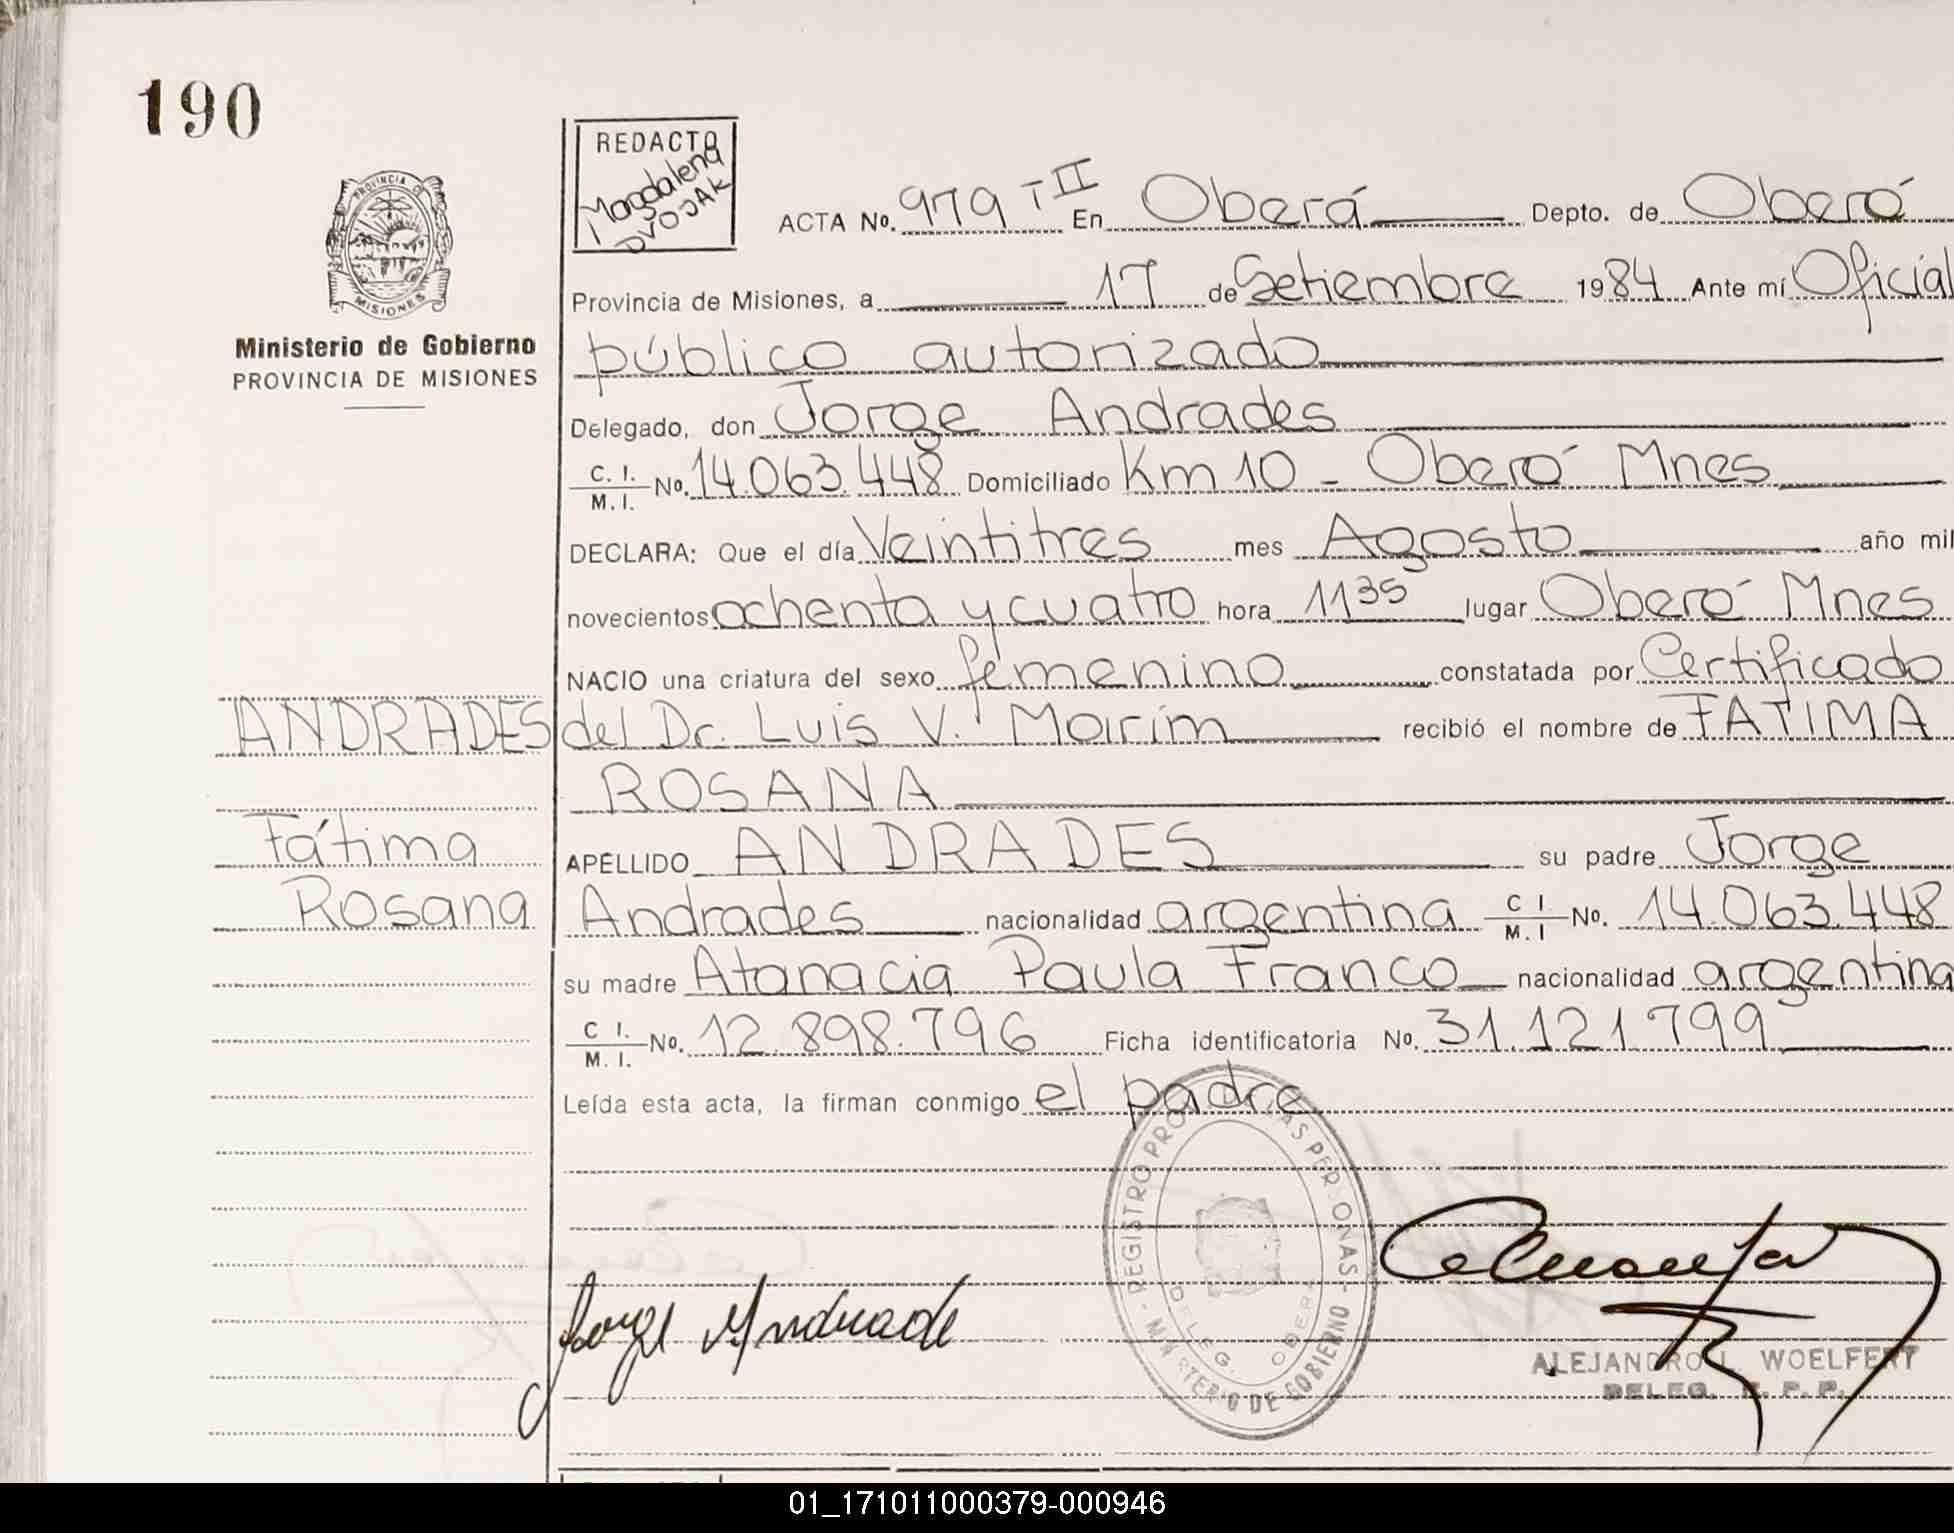 190
REDACTO
Magdalena
DVOJAK
PROVINCIA DE
MISIONES
Ministerio de Gobierno
PROVINCIA DE MISIONES
ACTA No. 979 T II En Oberá Depto. de Oberá
Provincia de Misiones, a 17 de Setiembre 1984 Ante mí Oficial
público autorizado
Delegado, don Jorge Andrades
C. I. M. I. No. 14.063.448 Domiciliado Km 10 - Oberá Mnes
DECLARA: Que el día Veintitres mes Agosto año mil
novecientos ochenta y cuatro hora 11 35 lugar Oberá Mnes
NACIO una criatura del sexo femenino constatada por Certificado
ANDRADES
del Dr. Luis V. Mairim recibió el nombre de FATIMA
ROSANA
Fátima
Rosana
APELLIDO ANDRADES su padre Jorge
Andrades nacionalidad argentina C I M. I No. 14.063.448
su madre Atanacia Paula Franco nacionalidad argentina
C I. M. I. No. 12.898.796 Ficha identificatoria No. 31.121.799
Leída esta acta, la firman conmigo el padre
REGISTRO PRO LAS PERSONAS - MINISTERIO DE GOBIERNO
DELEG. OBERA
Jorge Andrade
ALEJANDRO L. WOELFERT
DELEG. R. P. P.
01_171011000379-000946